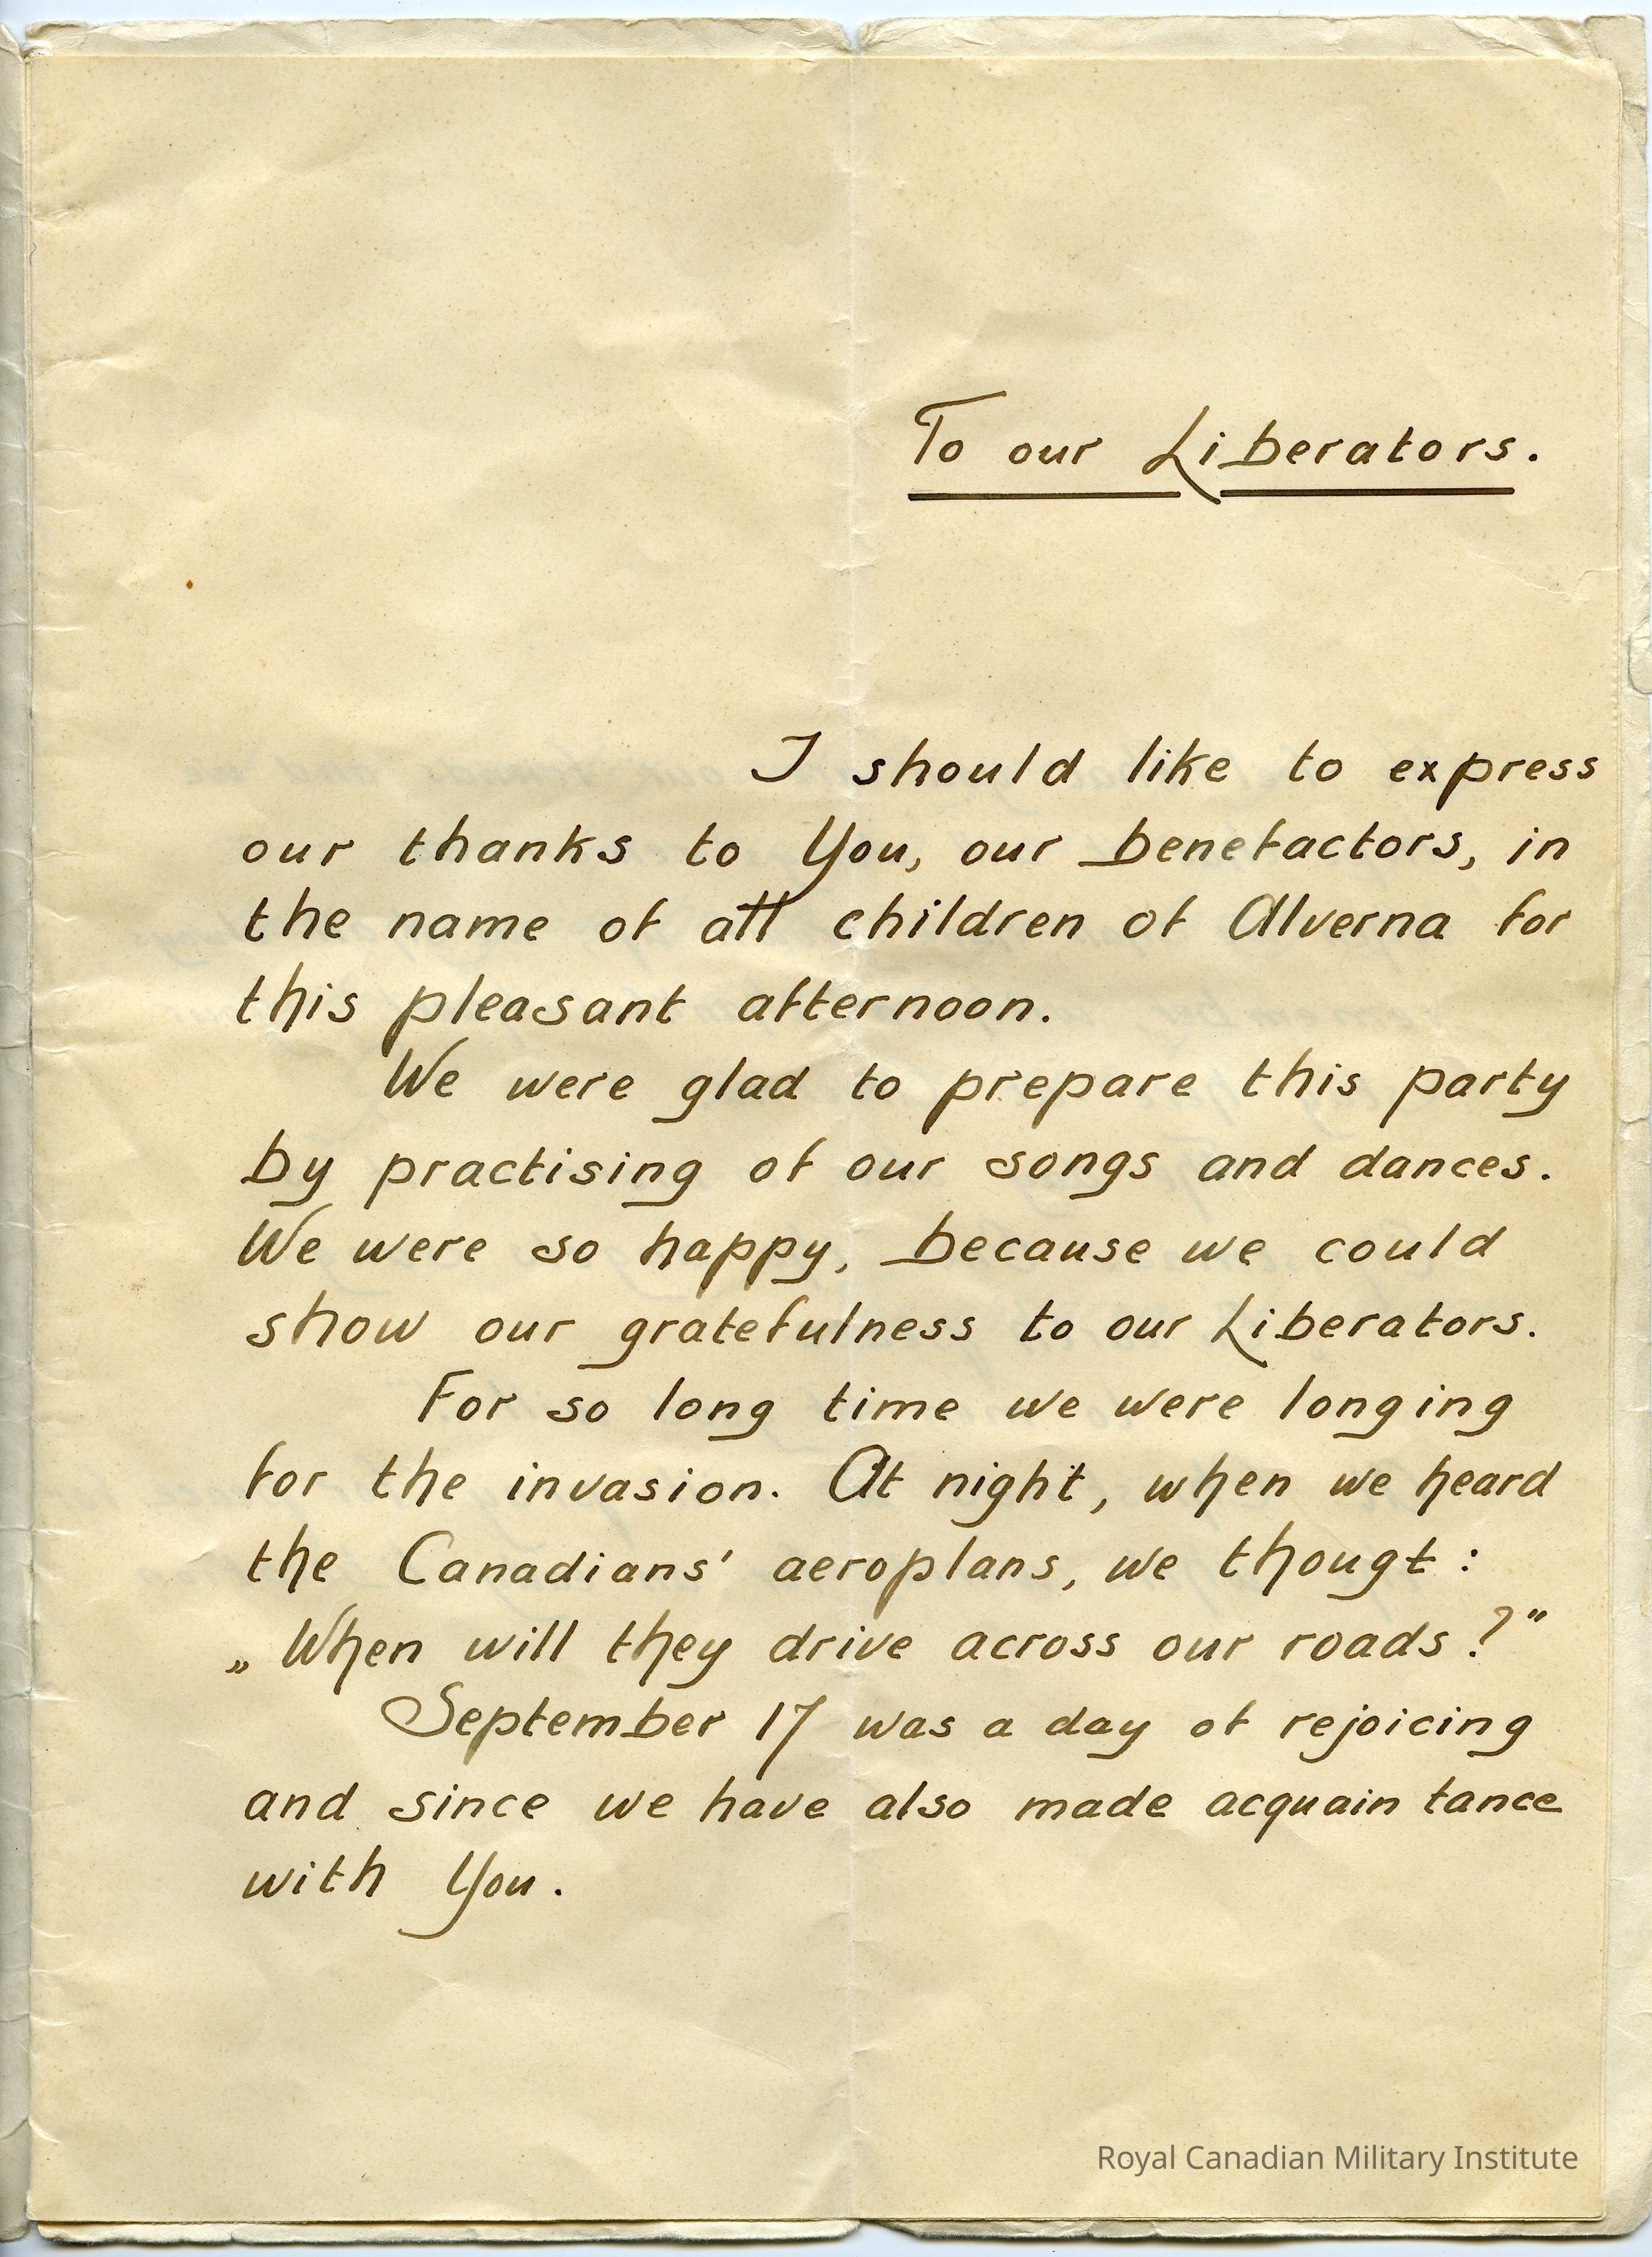 To our Liberators.
I should like to express
our thanks to You, our benefactors, in
the name of all children of Alverna for
this pleasant afternoon.
We were glad to prepare this party
by practising of our songs and dances.
We were so happy, because we could
show our gratefulness to our Liberators.
For so long time we were longing
for the invasion. At night, when we heard
the Canadians' aeroplans, we thougt :
„When will they drive across our roads ?"
September 17 was a day of rejoicing
and since we have also made acquaintance
with You.
Royal Canadian Military Institute